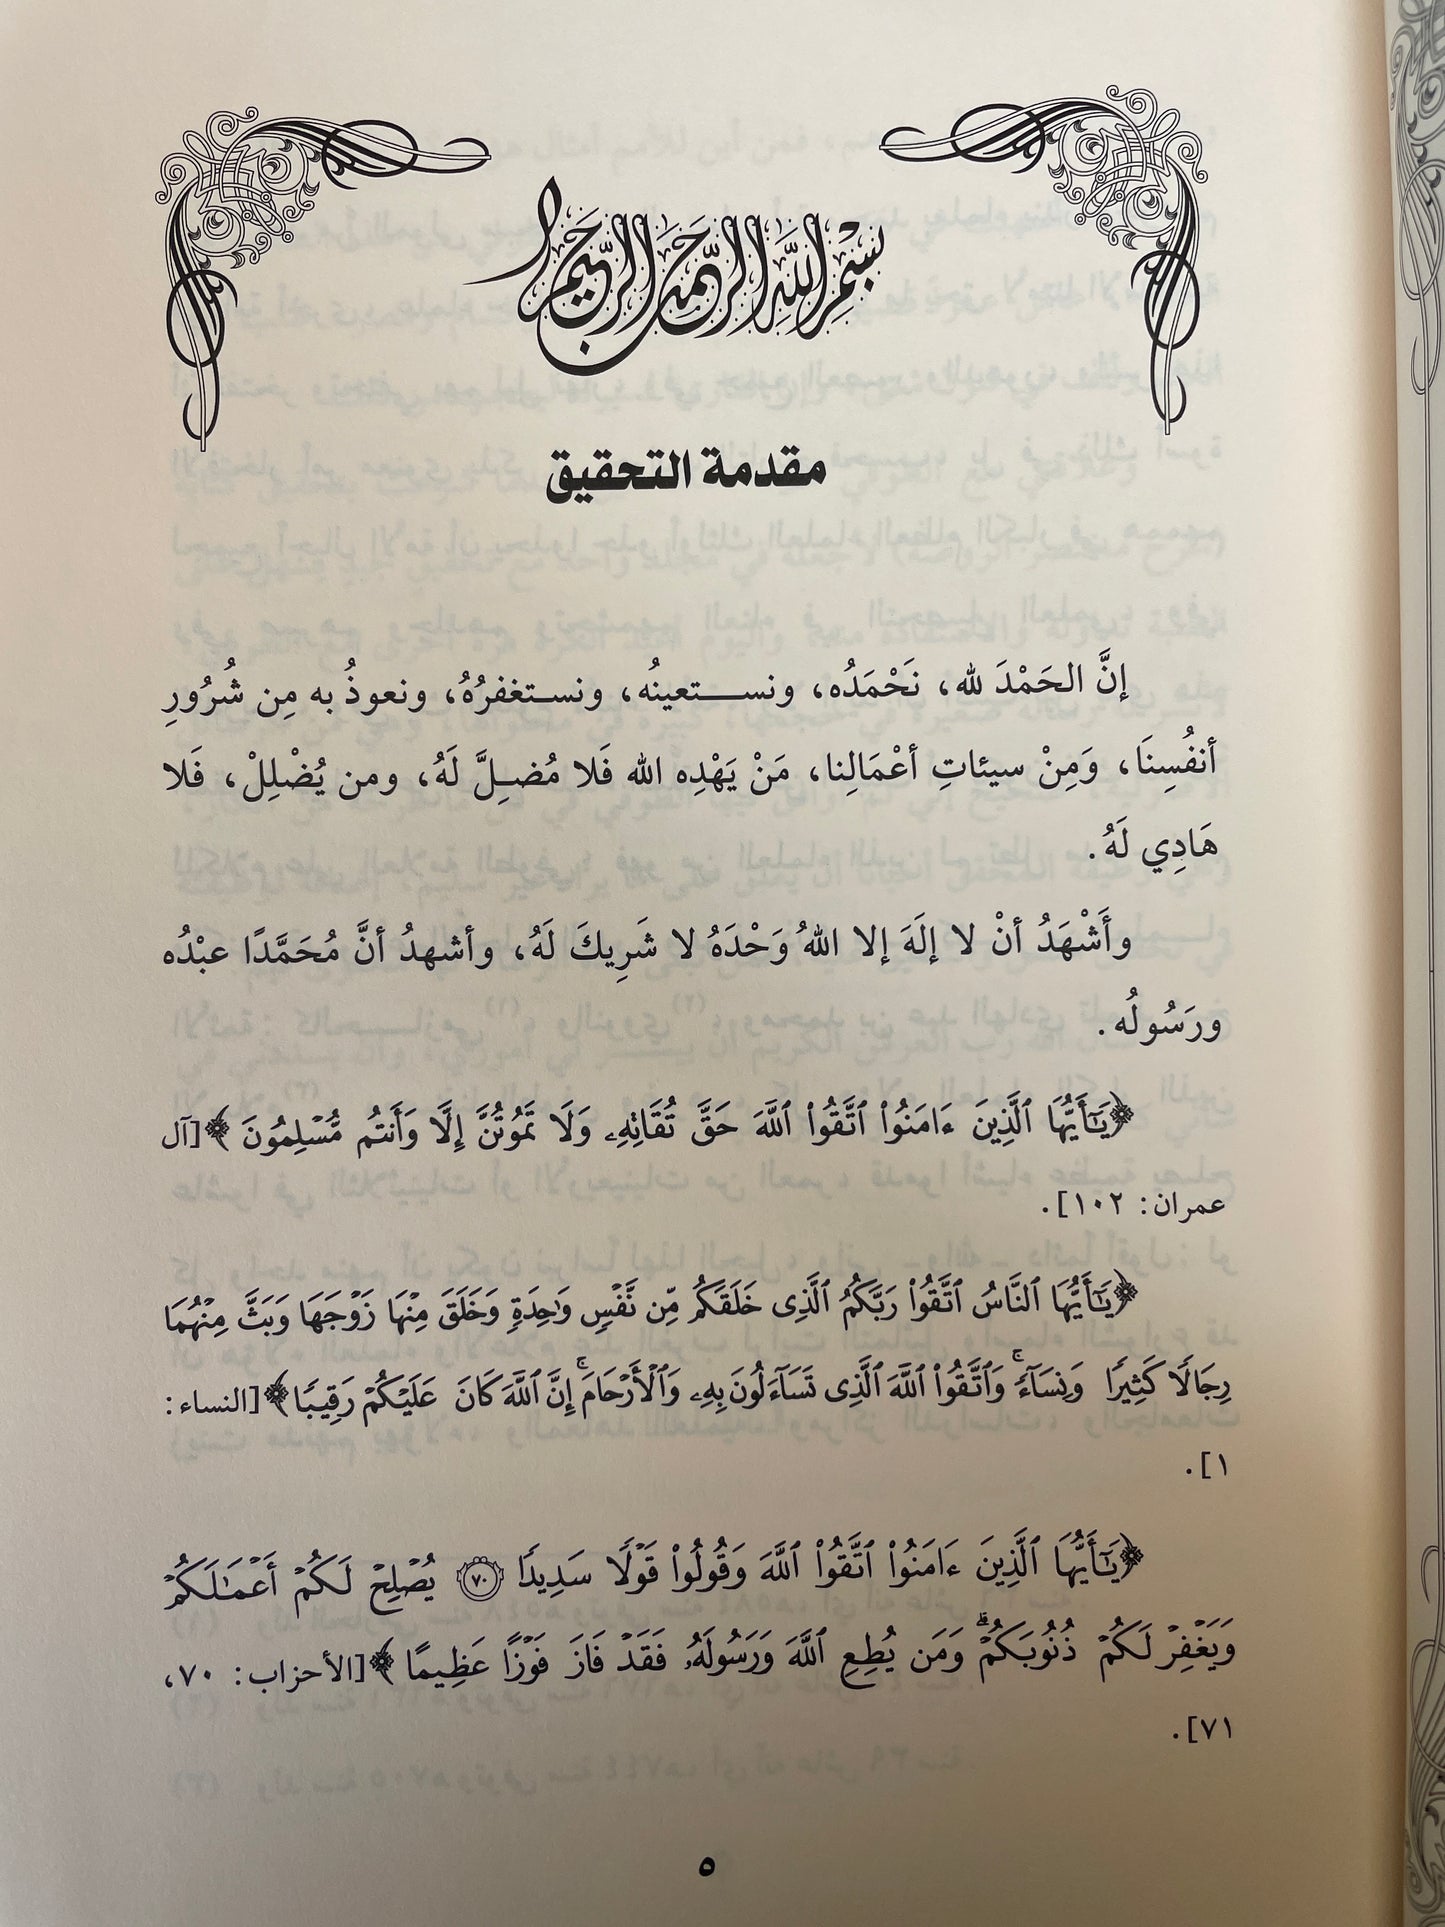 بِسْمِ اللَّهِ الرَّحْمَنِ الرَّحِيمِ
مقدمة التحقيق
إنَّ الحَمْدَ لله، نَحْمَدُه، ونستعينُه، ونستغفرُهُ، ونعوذُ به مِن شُرُورِ
أنفُسِنَا، وَمِنْ سيئاتِ أعْمَالِنا، مَنْ يَهْدِه الله فَلا مُضلَّ لَهُ، ومن يُضْلِلْ، فَلا
هَادِي لَهُ.
وأَشْهَدُ أنْ لا إلَهَ إلا اللهُ وَحْدَهُ لا شَرِيكَ لَهُ، وأشهدُ أنَّ مُحَمَّدًا عبْدُه
ورَسُولُه.
﴿يَٰٓأَيُّهَا ٱلَّذِينَ ءَامَنُواْ ٱتَّقُواْ ٱللَّهَ حَقَّ تُقَاتِهِۦ وَلَا تَمُوتُنَّ إِلَّا وَأَنتُم مُّسۡلِمُونَ﴾ [آل
عمران: ١٠٢].
﴿يَٰٓأَيُّهَا ٱلنَّاسُ ٱتَّقُواْ رَبَّكُمُ ٱلَّذِى خَلَقَكُم مِّن نَّفۡسٖ وَٰحِدَةٖ وَخَلَقَ مِنۡهَا زَوۡجَهَا وَبَثَّ مِنۡهُمَا
رِجَالٗا كَثِيرٗا وَنِسَآءٗۚ وَٱتَّقُواْ ٱللَّهَ ٱلَّذِى تَسَآءَلُونَ بِهِۦ وَٱلۡأَرۡحَامَۚ إِنَّ ٱللَّهَ كَانَ عَلَيۡكُمۡ رَقِيبٗا﴾ [النساء:
١].
﴿يَٰٓأَيُّهَا ٱلَّذِينَ ءَامَنُواْ ٱتَّقُواْ ٱللَّهَ وَقُولُواْ قَوۡلٗا سَدِيدٗا ٧٠ يُصۡلِحۡ لَكُمۡ أَعۡمَٰلَكُمۡ
وَيَغۡفِرۡ لَكُمۡ ذُنُوبَكُمۡۗ وَمَن يُطِعِ ٱللَّهَ وَرَسُولَهُۥ فَقَدۡ فَازَ فَوۡزًا عَظِيمًا﴾ [الأحزاب: ٧٠،
٧١].
٥